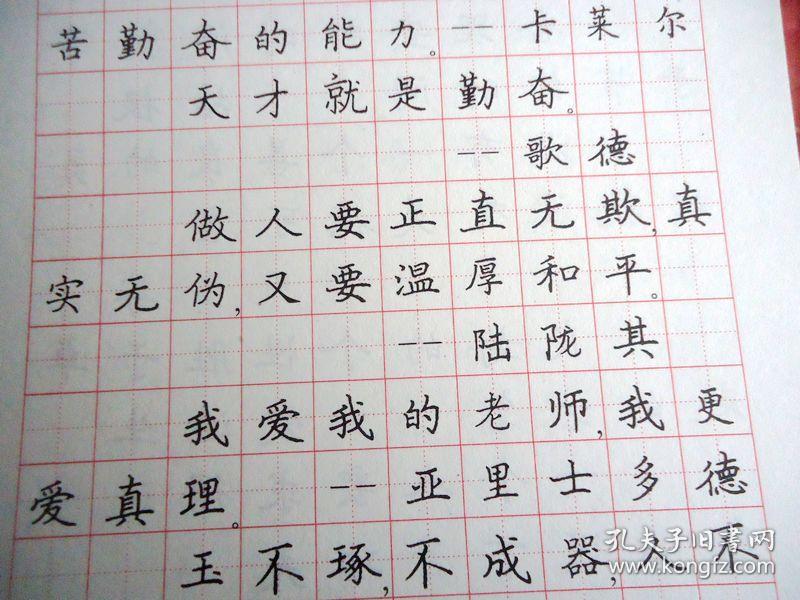 苦勤奋的能力。--卡莱尔
天才就是勤奋。
--歌德
做人要正直无欺,真
实无伪,又要温厚和平。
--陆陇其
我爱我的老师,我更
爱真理。--亚里士多德
玉不琢,不成器,人不
孔夫子旧书网
www.kongfz.com